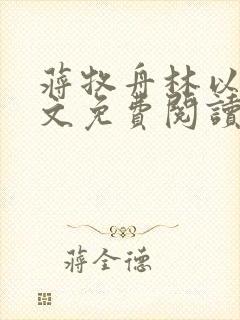 蔣牧舟林以
文免費閱讀
蔣全德